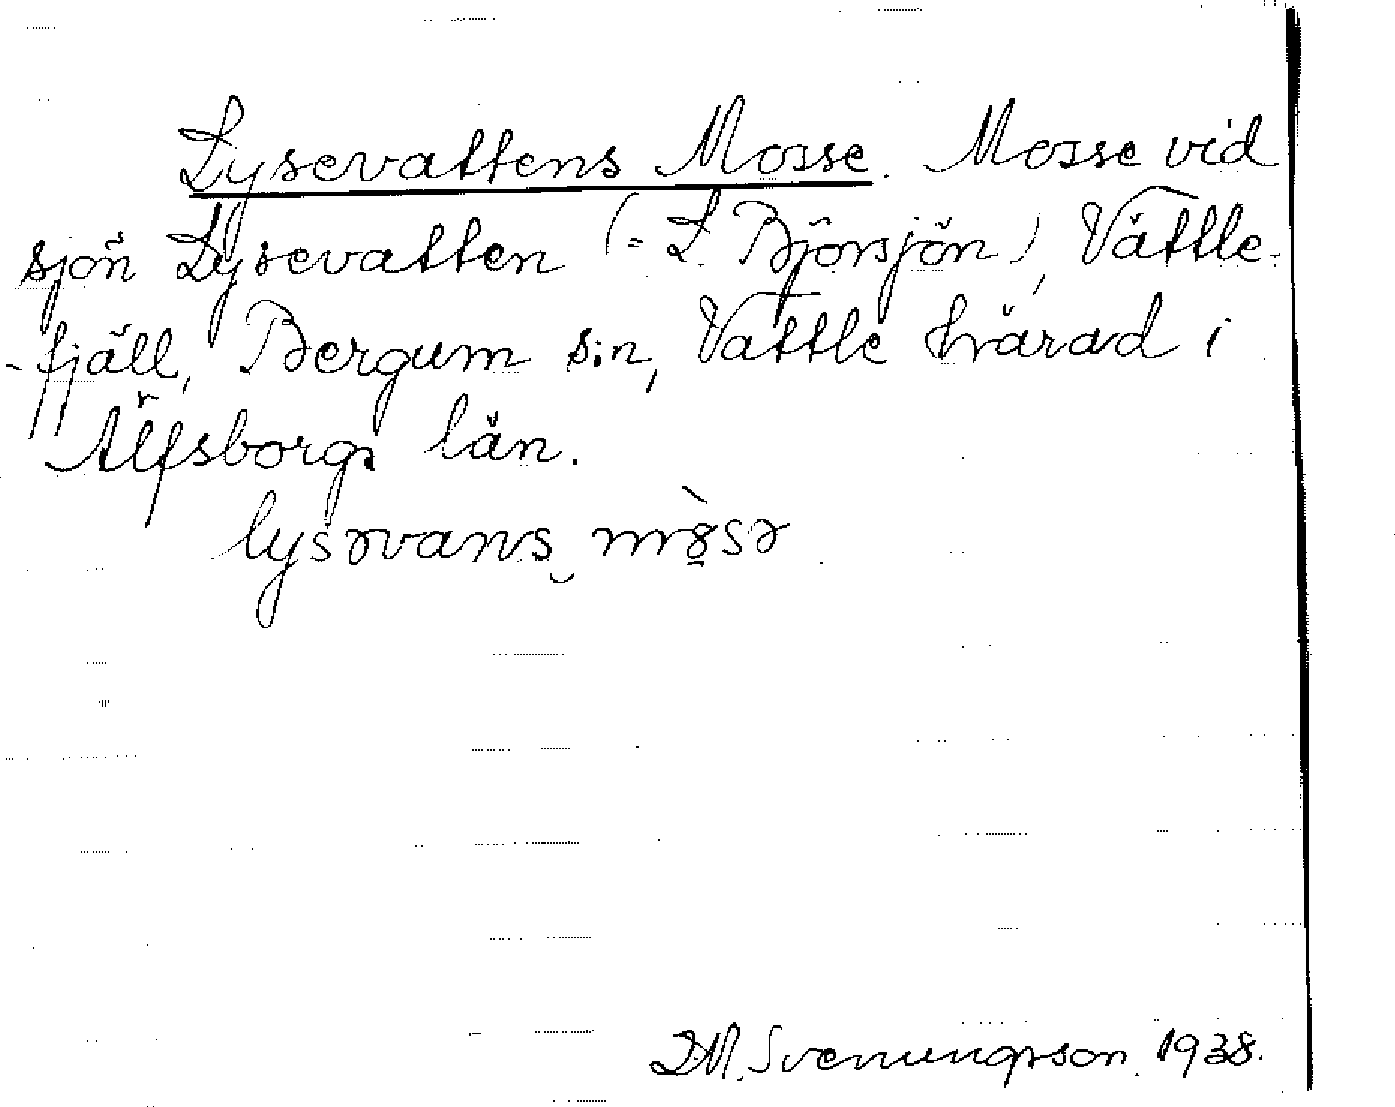 Lysevattens Mosse. Mosse vid
sjön Lysevatten (= L. Björsjön), Vättle-
-fjäll, Bergum s:n, Vättle härad i
Älfsborgs län.
lysəvans mòsə
Svenungsson. 1938.